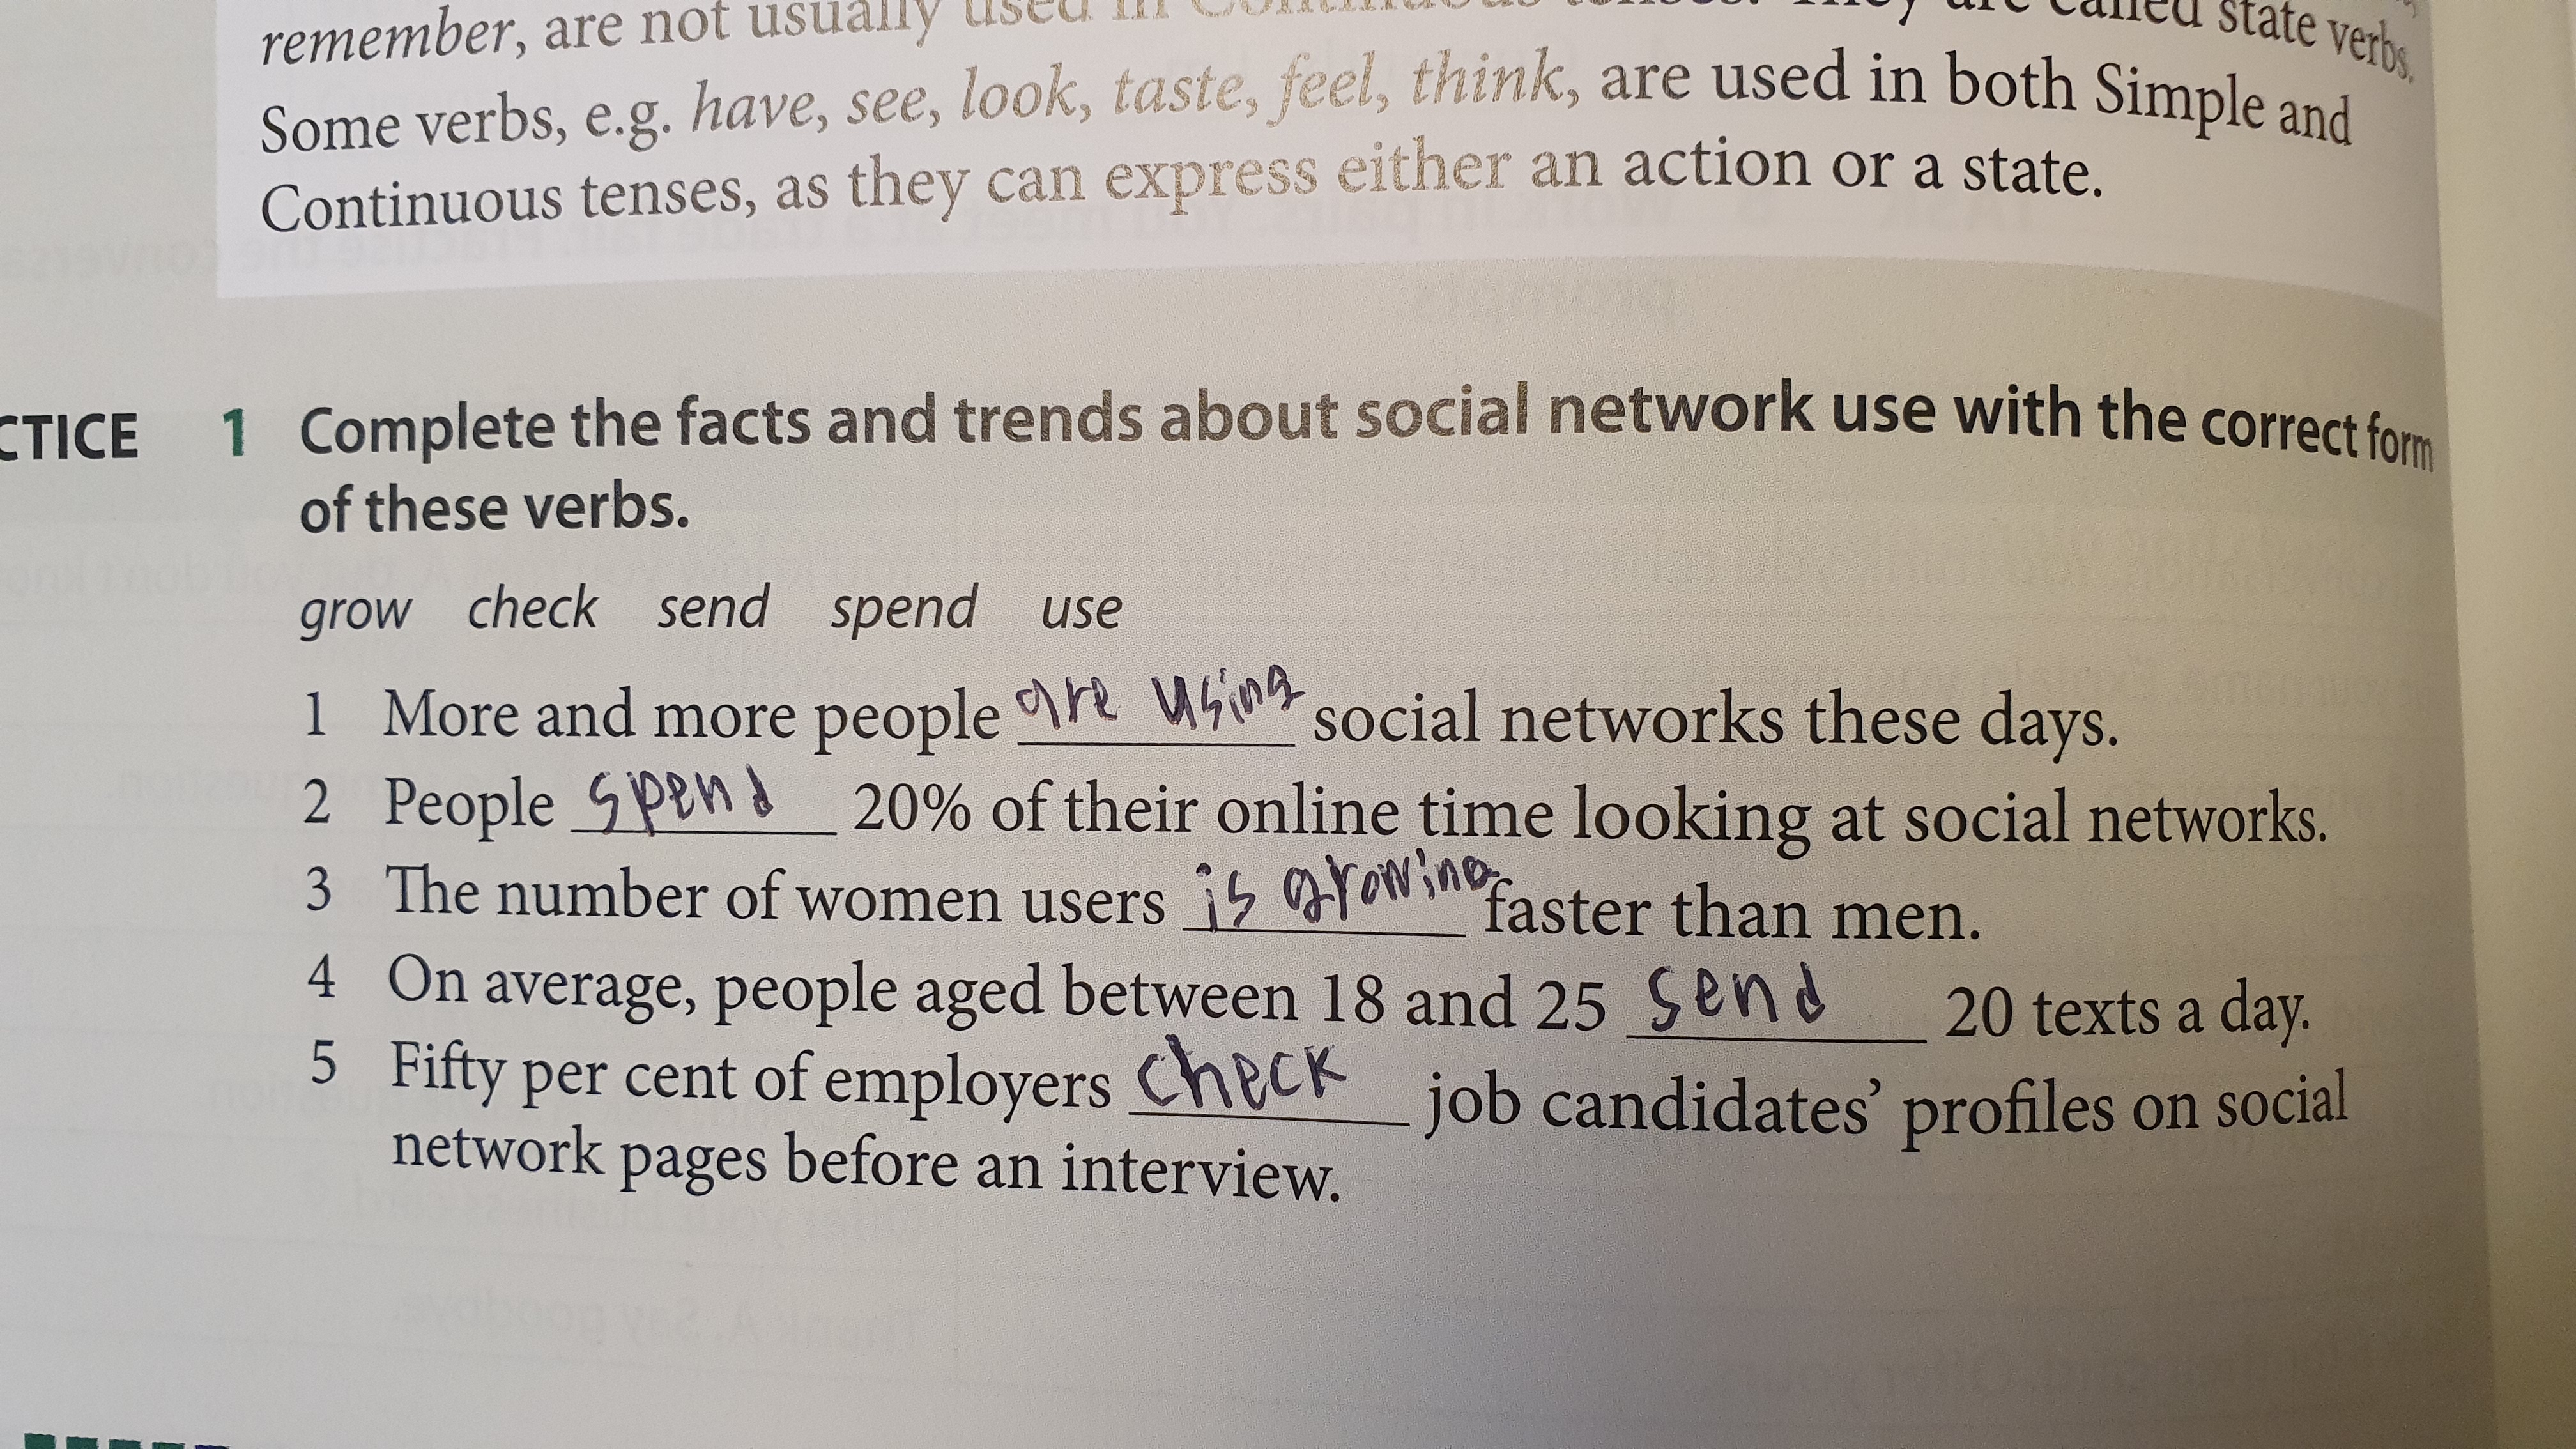 remember, are not usually used in Continuous tenses. They are called state verbs.
Some verbs, e.g. have, see, look, taste, feel, think, are used in both Simple and
Continuous tenses, as they can express either an action or a state.
CTICE 1 Complete the facts and trends about social network use with the correct form
of these verbs.
grow check send spend use
1 More and more people are using social networks these days.
2 People spend 20% of their online time looking at social networks.
3 The number of women users is growing faster than men.
4 On average, people aged between 18 and 25 send 20 texts a day.
5 Fifty per cent of employers check job candidates’ profiles on social
network pages before an interview.